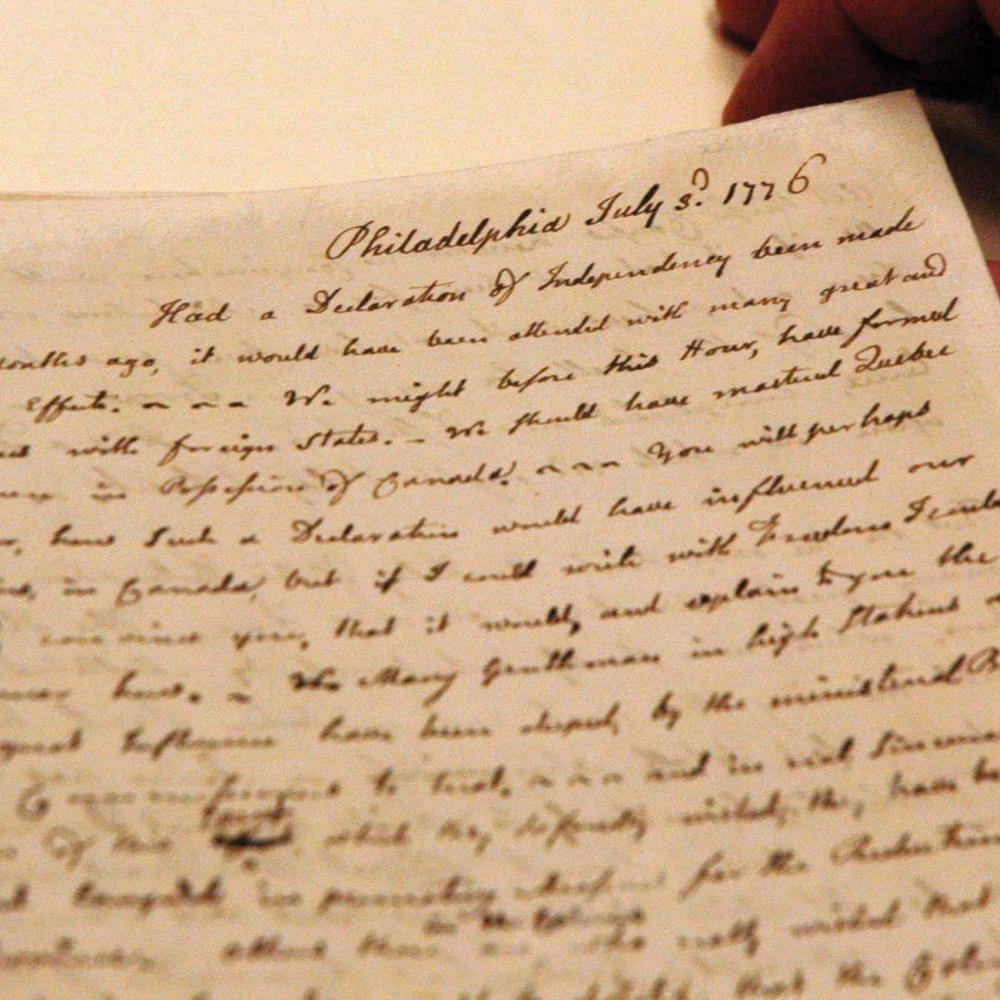 Philadelphia July 3d. 1776
Had a Declaration of Independency been made
months ago, it would have been attended with many great and
Effects. ~ ~ ~ We might before this Hour, have formed
with foreign States. – We should have mastered Quebec
in Possession of Canada. ~ ~ ~ You will perhaps
how Such a Declaration would have influenced our
in Canada, but if I could write with Freedom I could
convince you, that it would, and explain to you the
how. – Many Gentlemen in high Stations
great Influence have been duped, by the ministerial
to treat. ~ ~ ~ and in real
of this which they wished, they have
in promoting for the Reduction
in the Colonies
others there are who really wished that
that the